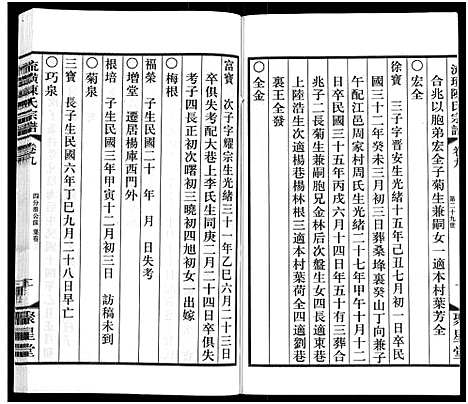 流璜陳氏宗譜
卷九
第二十九世
合兆以胞弟宏全子菊生兼嗣女一適本村葉芳全
○宏全
徐寶　三子字晋安生光緒十五年己丑七月初一日卒民
國三十二年癸未三月初三日葬桑埄裏癸山丁向兼子
午配江邑周家村周氏生光緒二十七年甲午十月十二
日卒民國三十五年丙戌六月十四日年五十有三葬合
兆子二長菊生兼嗣胞兄金林后次盤生女四長適東巷
上陸浩生次適楊巷楊林根三適本村葉荷全四適劉巷
裏王全發
○全金
富寶　次子字耀宗生光緒三十一年乙巳六月二十三日
卒俱失考配大巷上李氏生同庚二月二十四日卒俱失
考子四長正初次曙初三曉初四旭初女一出嫁
○梅根
福榮　子生民國二十　年　月　日失考
○增堂　遷居楊庫西門外
根培　子生民國三年甲寅十二月初三日　訪稿未到
○菊泉
三寶　長子生民國六年丁巳九月二十八日早亡
○巧泉
流璜陳氏宗譜
卷九
聚星堂